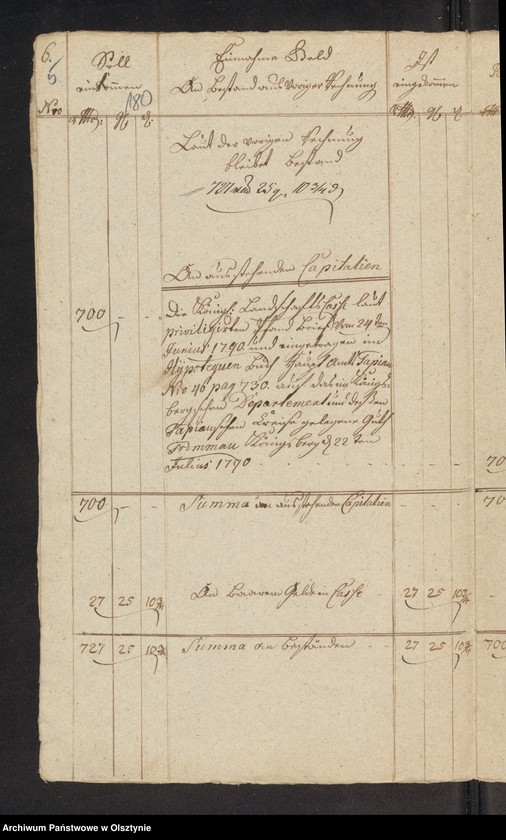 6.
5
180
Soll
einkommen
Einnahme Geld
An Bestand aus voriger Rechnung
Ist
eingekommen
Nro
Rthr: gl. d:
Laut der vorigen Rechnung
bleibet Bestand
25 g. 10 3/4 d
An ausstehenden Capitalien
700 - -
Die Königl: Landschafts Casse laut
privilegirten Pfand Brief vom 24ten
Junius 1790. und eingetragen im
Hypotequen Buch Haupt Amts Tapiau
Nro 46 pag 730. auf das im Königs-
bergschen Departement und dessen
Tapiauschen Creise gelegene Guth
Trimmau Königsberg d 22ten
Julius 1790
70
700 - - Summa an ausstehenden Capitalien - - -
70
27 25 10 3/4 An Baarem Gelde in Casse 27 25 10 3/4
727 25 10 3/4 Summa an Beständen 27 25 10 3/4
700
Archiwum Państwowe w Olsztynie